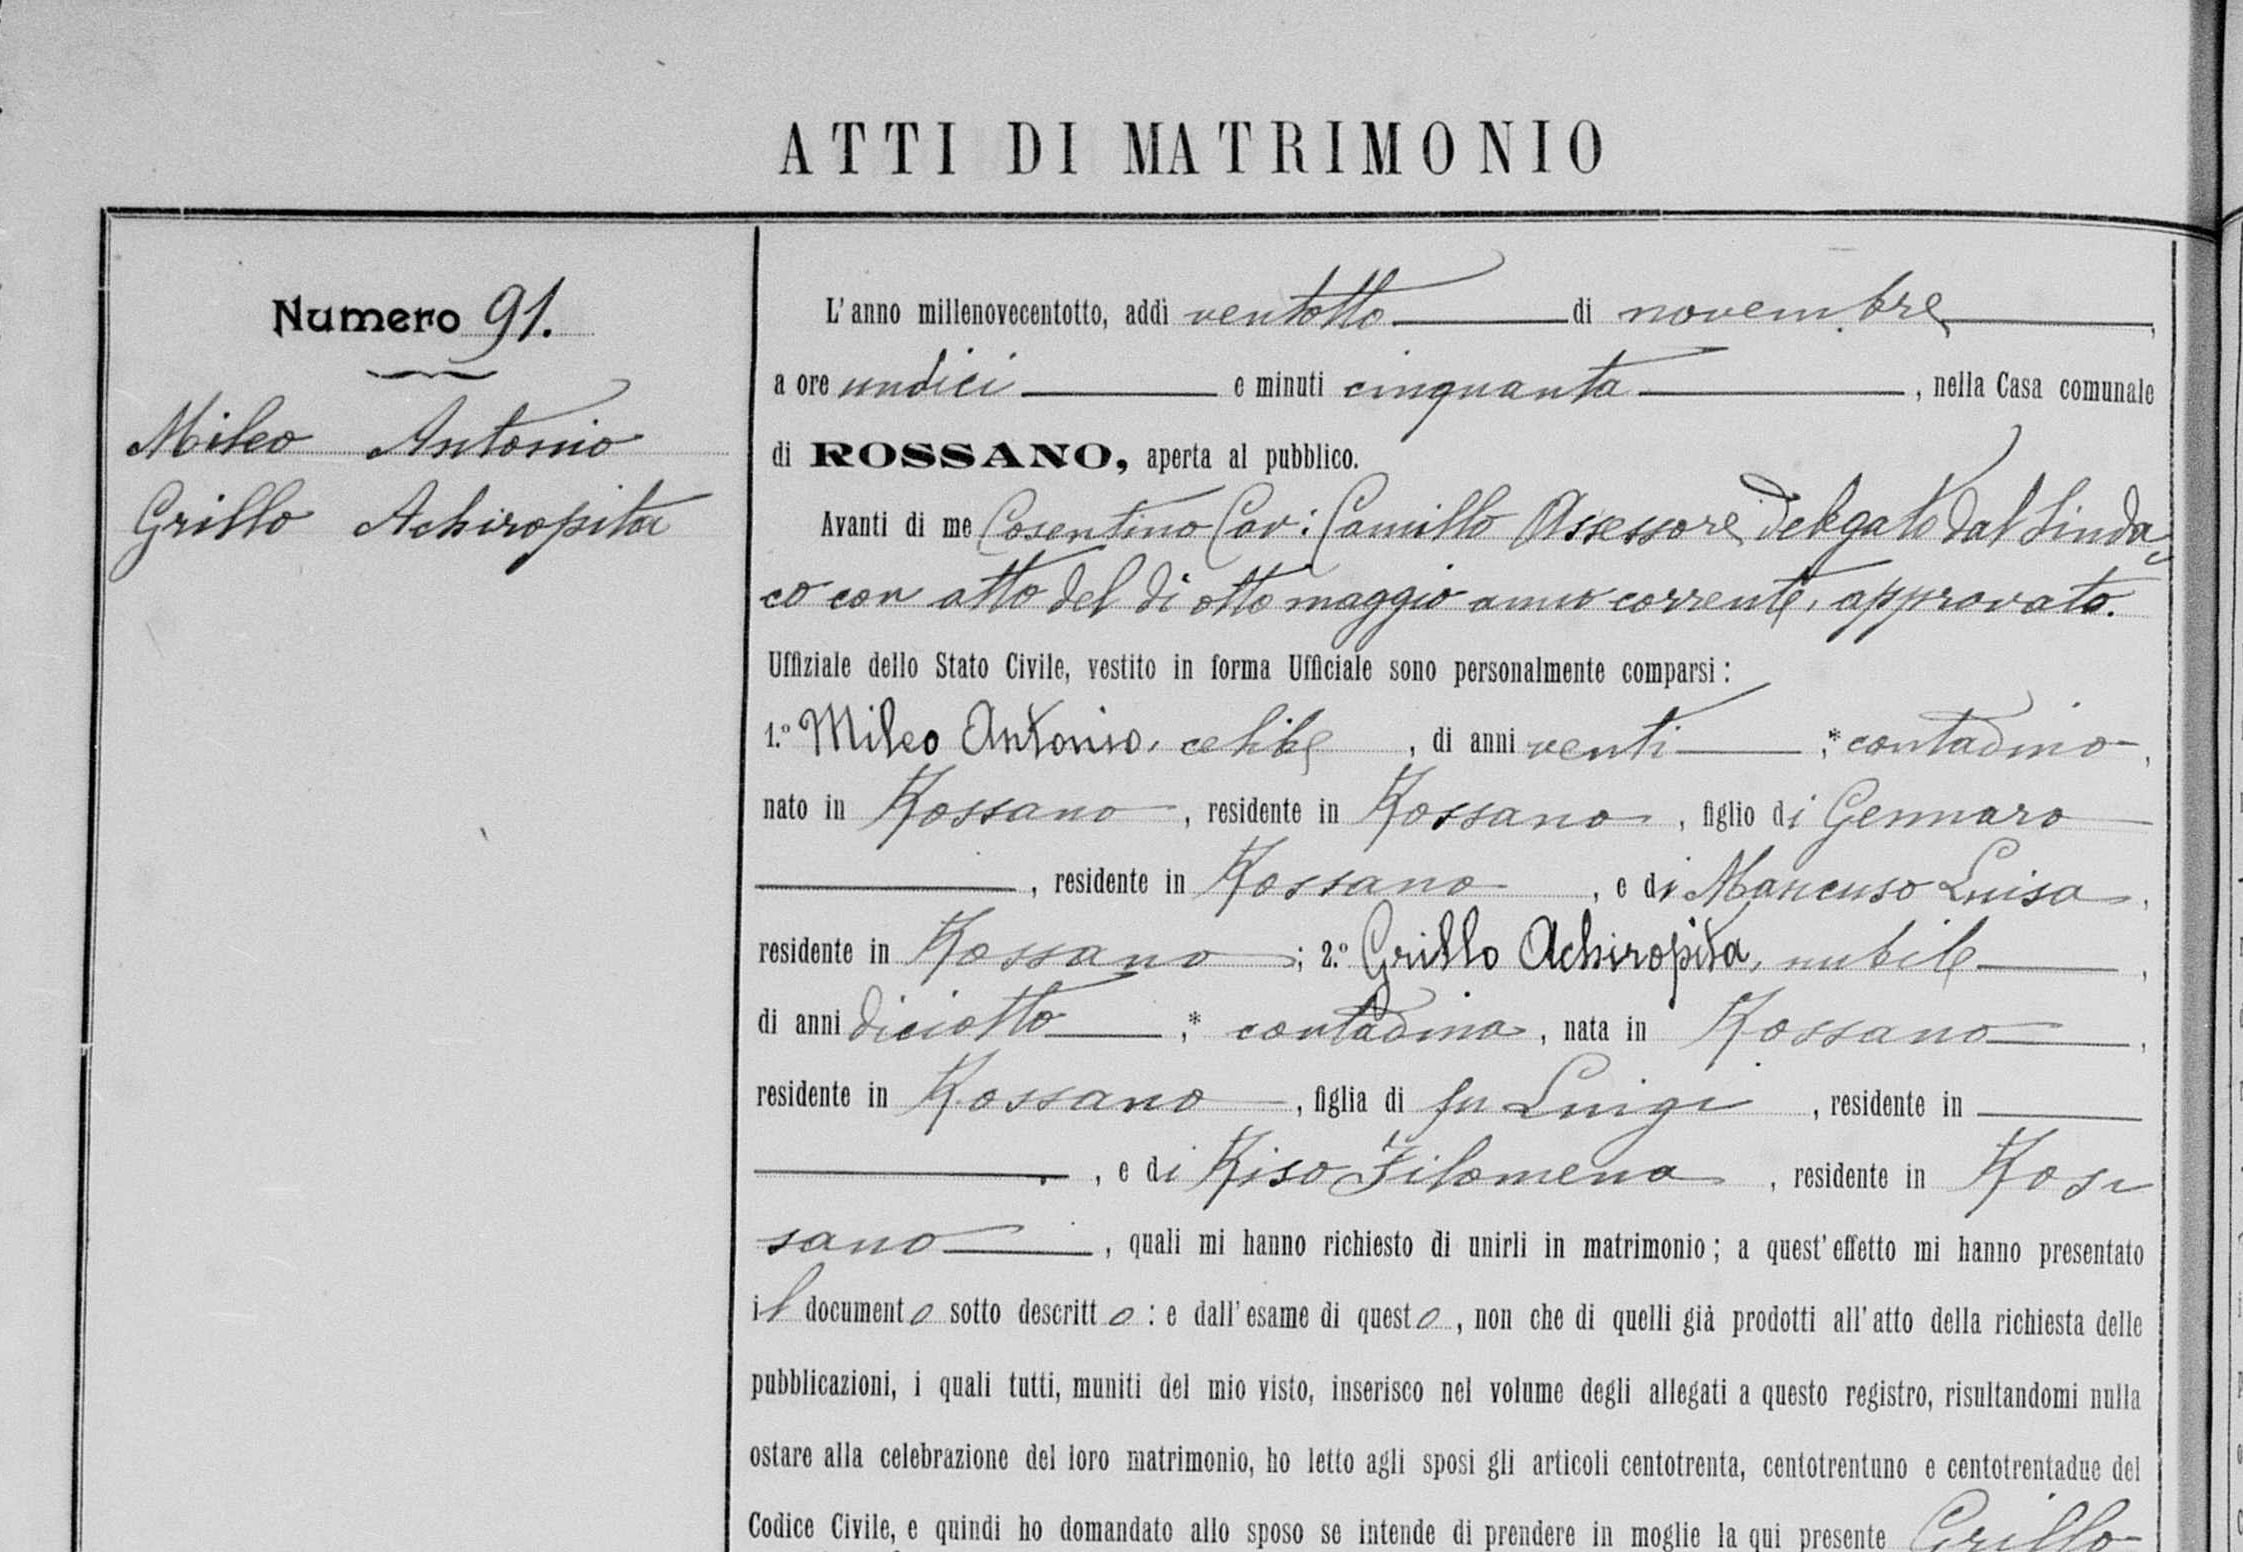 ATTI DI MATRIMONIO
Numero 91.
Mileo Antonio
Grillo Achiropita
L'anno millenovecentotto, addì ventotto di novembre,
a ore undici e minuti cinquanta, nella Casa comunale
di ROSSANO, aperta al pubblico.
Avanti di me Cosentino Cav: Camillo Assessore delegato dal Sinda=
co con atto del dì otto maggio anno corrente, approvato.
Uffiziale dello Stato Civile, vestito in forma Ufficiale sono personalmente comparsi:
1.° Mileo Antonio, celibe, di anni venti,* contadino,
nato in Rossano, residente in Rossano, figlio di Gennaro
, residente in Rossano, e di Mancuso Luisa,
residente in Rossano; 2.° Grillo Achiropita, nubile,
di anni diciotto,* contadina, nata in Rossano,
residente in Rossano, figlia di fu Luigi, residente in
, e di Riso Filomena, residente in Ros=
sano, quali mi hanno richiesto di unirli in matrimonio; a quest'effetto mi hanno presentato
il documento sotto descritto: e dall'esame di questo, non che di quelli già prodotti all'atto della richiesta delle
pubblicazioni, i quali tutti, muniti del mio visto, inserisco nel volume degli allegati a questo registro, risultandomi nulla
ostare alla celebrazione del loro matrimonio, ho letto agli sposi gli articoli centotrenta, centotrentuno e centotrentadue del
Codice Civile, e quindi ho domandato allo sposo se intende di prendere in moglie la qui presente Grillo